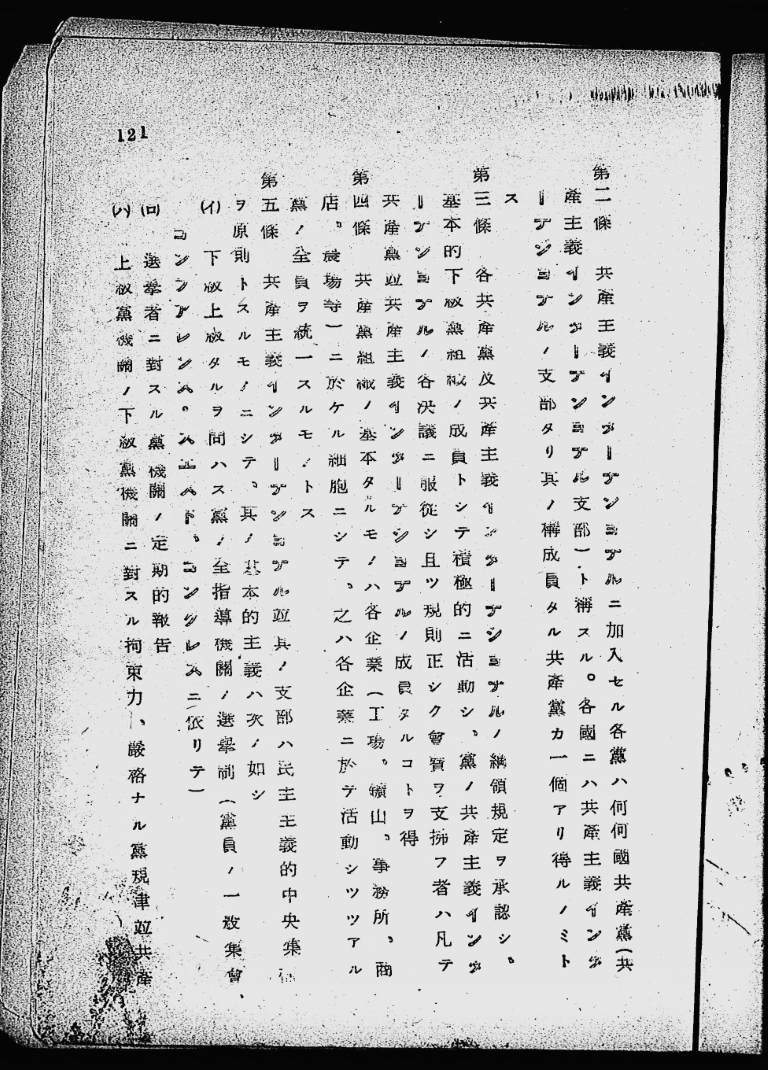 121
第二條 共產主義インターナシヨナルニ加入セル各黨ハ何何國共產黨(共
產主義インターナシヨナル支部)ト稱スル。各國ニハ共產主義インタ
ーナシヨナルノ支部タリ其ノ構成員タル共產黨カ一個アリ得ルノミト
ス
第三條 各共產黨及共產主義インターナシヨナルノ綱領規定ヲ承認シ、
基本的下級黨組織ノ成員トシテ積極的ニ活動シ、黨ノ共產主義インタ
ーナシヨナルノ各決議ニ服從シ且ツ規則正シク會費ヲ支拂フ者ハ凡テ
共產黨竝共產主義インターナシヨナルノ成員タルコトヲ得
第四條 共產黨組織ノ基本タルモノハ各企業(工場。鑛山、事務所、商
店。農場等)ニ於ケル細胞ニシテ、之ハ各企業ニ於テ活動シツツアル
黨ノ全員ヲ統一スルモノトス
第五條 共產主義インターナシヨナル竝其ノ支部ハ民主主義的中央集
ヲ原則トスルモノニシテ、其ノ基本的主義ハ次ノ如シ
(イ) 下級上級タルヲ問ハス黨ノ全指導機關ノ選擧制(黨員ノ一般集會、
コンフアレンス。コングレスニ依リテ)
(ロ) 選擧者ニ對スル黨機關ノ定期的報告
(ハ) 上級黨機關ノ下級黨機關ニ對スル拘束力、嚴格ナル黨規律竝共產